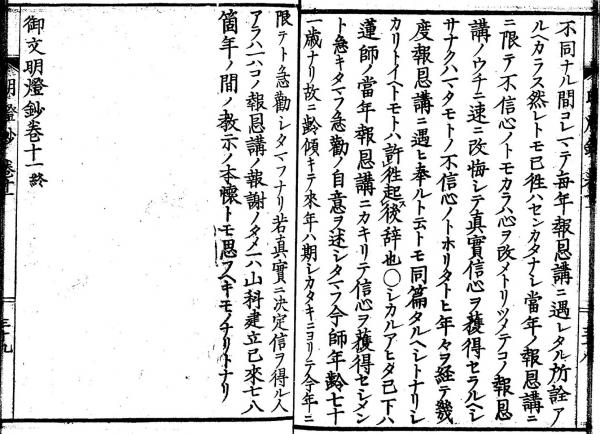 不同ナル間コレマテノ毎年報恩講ニ遇シタル所詮ア
ルヘカラス然レトモ已徃ハセンカタナシ當年ノ報恩講ニ
ニ限テ不信心ノトモカラ心ヲ改メトリツメテコノ報恩
講ノウチニ速ニ改悔シテ真實信心ヲ獲得セラルヘシ
サナクハマタモトノ不信心ノトホリタトヒ年々ヲ経テ幾
度報恩講ニ遇ヒ奉ルト云トモ同篇タルヘシトナリシ
カリトイヘトモトハ許徃起後辞也〇シカルアヒダ已下ハ
蓮師ノ當年報恩講ニカキリテ信心ヲ獲得セシメン
ト急キタマフ急勸ノ自意ヲ述シタマフ今師年齡七十
一歳ナリ故ニ齡傾キテ來年ハ期シカタキニヨリテ今年ニ
限テト急勸シタマフナリ若真實ニ决定信ヲ得ル人
アラハ一ハコノ報恩講ノ報謝ノタメ一ハ山科建立已來七八
箇年ノ間ノ教示ノ本懷トモ思フヘキモノナリトナリ
御文明燈鈔卷十一終
明燈鈔 卷十一
三十九